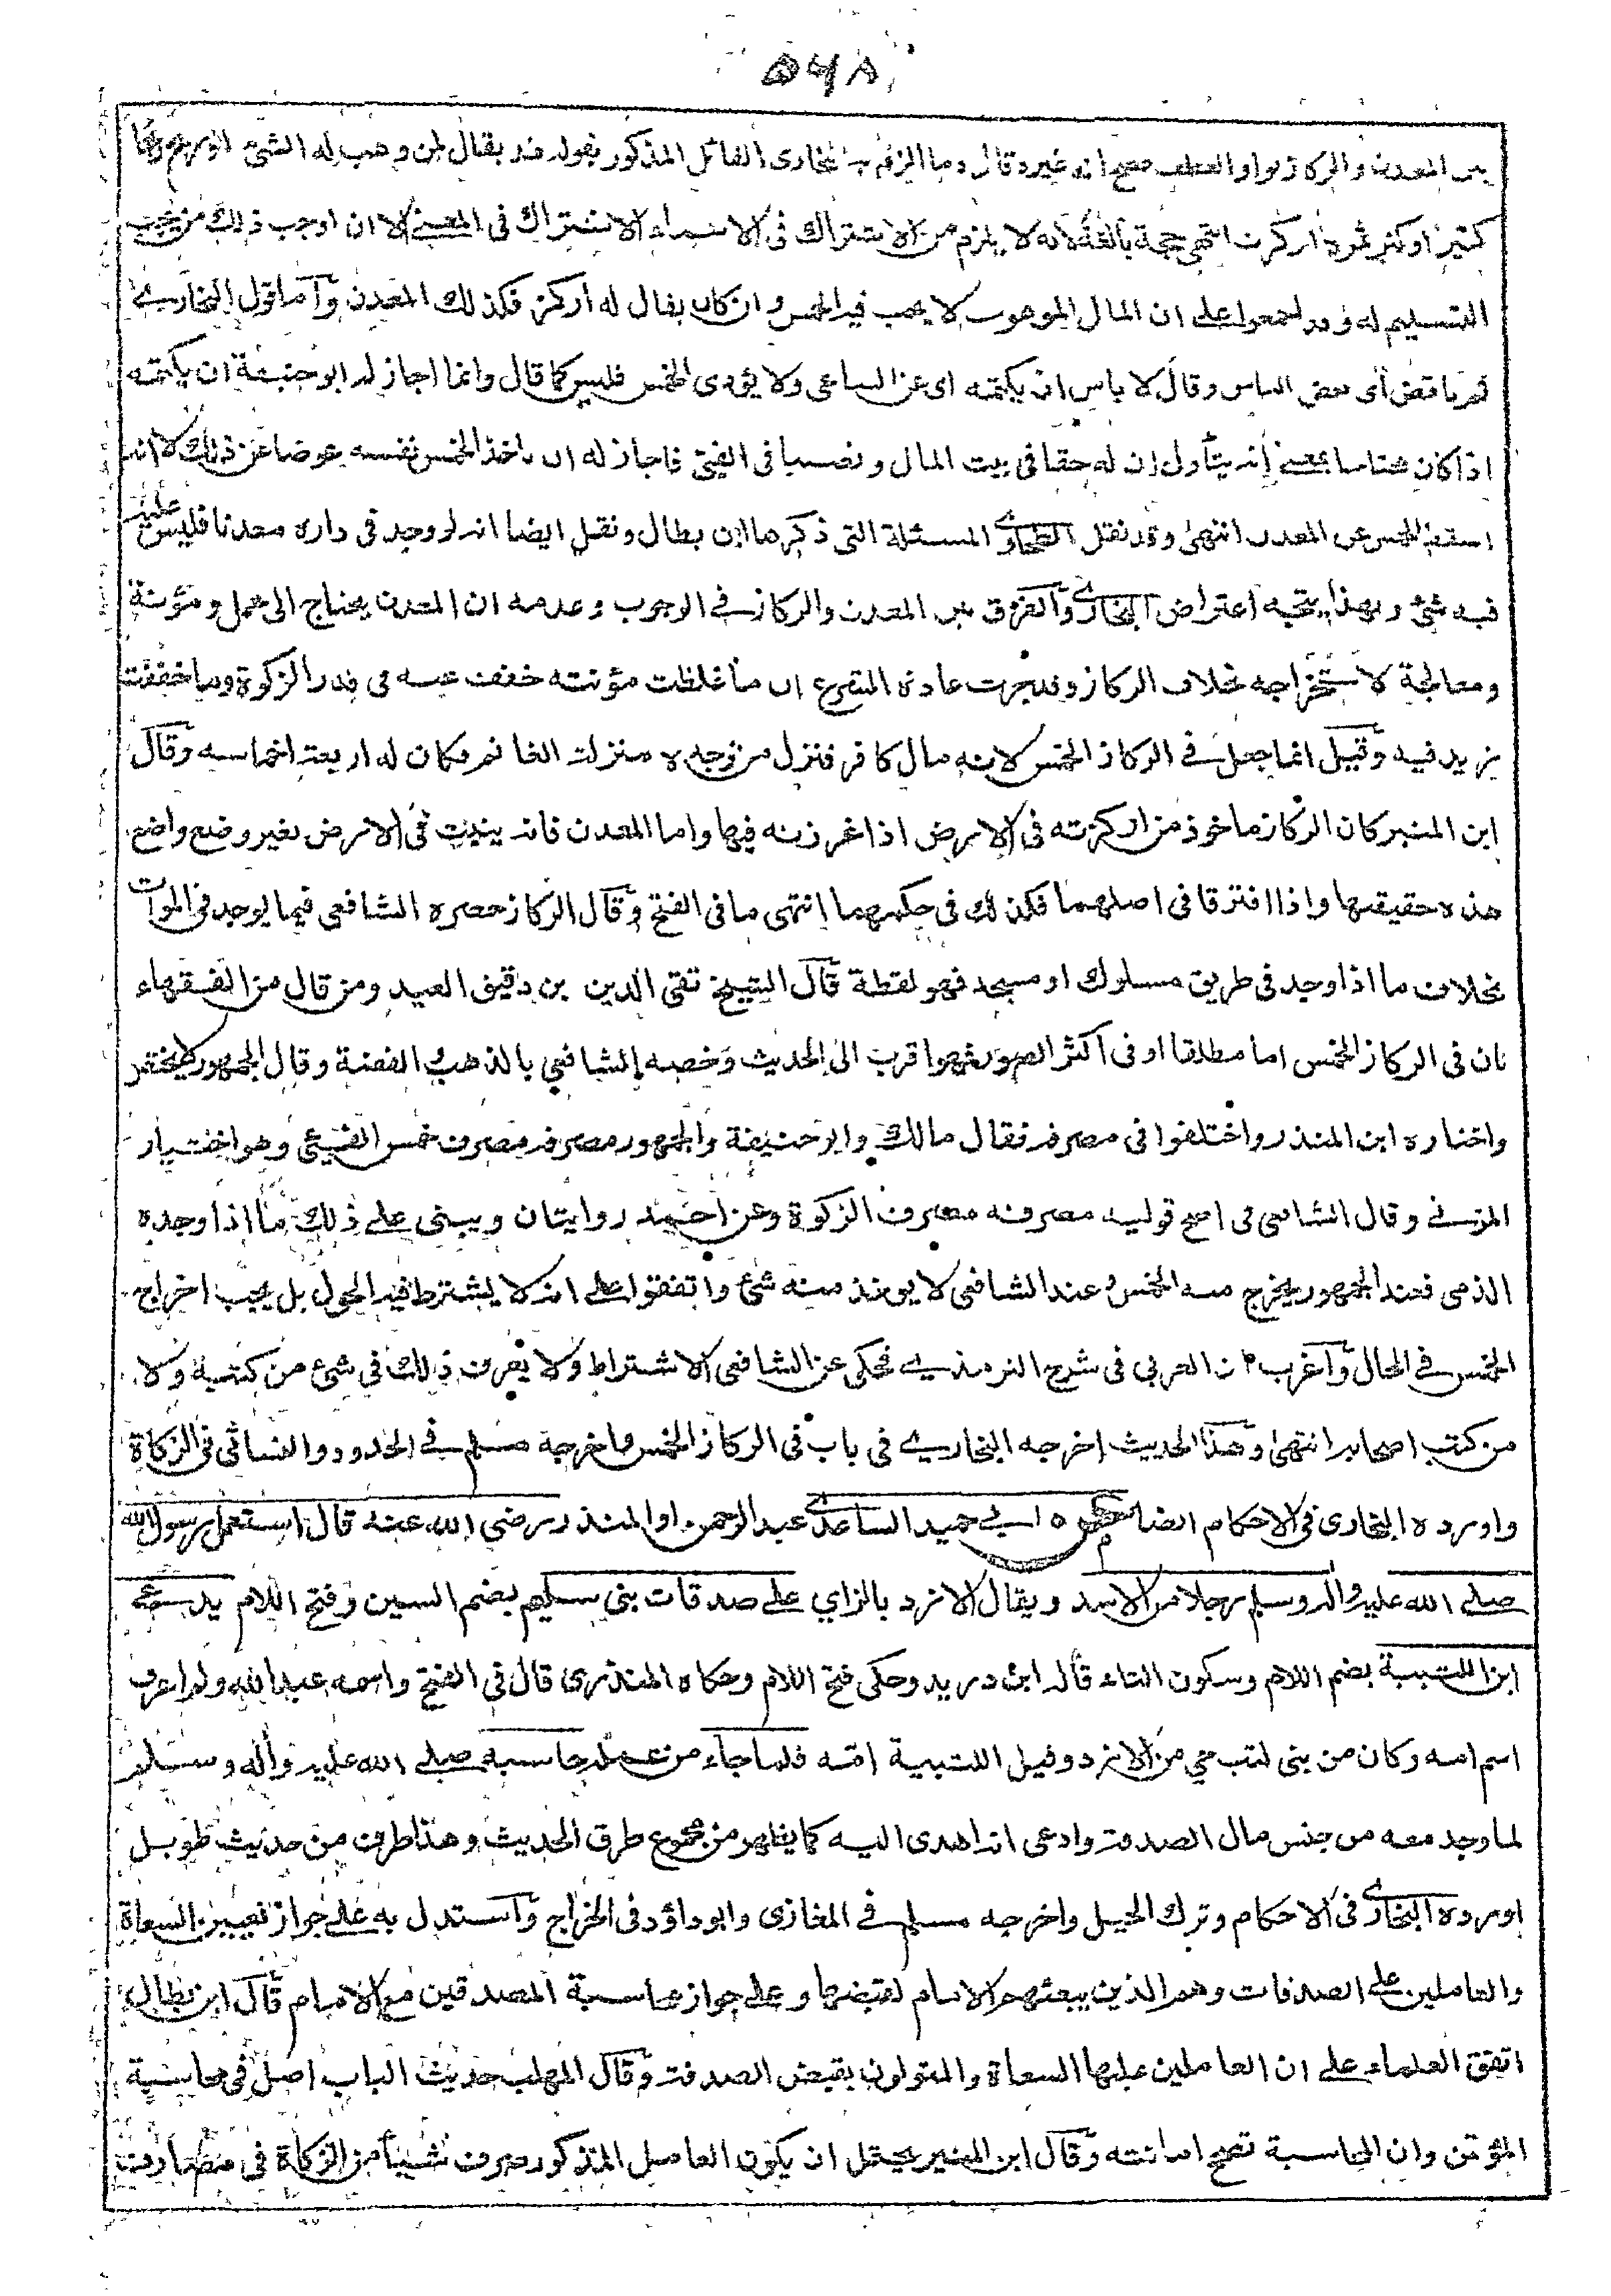 ٥٦٨
بين المعدن والركاز بواو العطف فصح انه غيره قال وما الزم به البخارى القائل المذكور بقوله قد يقال لمن وهب له الشئ او ربح ربحا
كثيرا او كثر ثمره اركزت انتهى حجة بالغة لانه لا يلزم من الاشتراك فى الاسماء الاشتراك فى المعنى الا ان اوجب ذلك من يجب
التسليم له وقد اجمعوا على ان المال الموهوب لا يجب فيه الخمس وان كان يقال له اركز فكذلك المعدن وأما قول البخارى
ثم ناقض أى بعض الناس وقال لا باس ان يكتمه اى عن الساعى ولا يؤدى الخمس فليس كما قال وانما اجاز له ابو حنيفة ان يكتمه
اذا كان محتاجا بمعنى أنه يتأول ان له حقا فى بيت المال ونصيبا فى الفئ فاجاز له ان ياخذ الخمس لنفسه عوضا عن ذلك لا انه
اسقط الخمس عن المعدن انتهى وقد نقل الطحاوى المسئلة التى ذكرها ابن بطال ونقل ايضا انه لو وجد فى داره معدنا فليس عليه
فيه شئ وبهذا يتجه اعتراض البخارى والفرق بين المعدن والركاز فى الوجوب وعدمه ان المعدن يحتاج الى عمل ومؤنة
ومعالجة لاستخراجه بخلاف الركاز وقد جرت عادة الشرع ان ما غلظت مؤنته خففت عنه فى قدر الزكوة وما خففت
زيد فيه وقيل انما جعل فى الركاز الخمس لانه مال كافر فنزل من وجده منزلة الغانم فكان له اربعة اخماسه وقال
ابن المنير كان الركاز ماخوذ من اركزته فى الارض اذا غرزته فيها واما المعدن فانه ينبت فى الارض بغير وضع واضع
هذه حقيقتها واذا افترقا فى اصلهما فكذلك فى حكمهما انتهى ما فى الفتح وقال الركاز حصره الشافعى فيما يوجد فى الموات
بخلاف ما اذا وجد فى طريق مسلوك او مسجد فهو لقطة قال الشيخ تقى الدين بن دقيق العيد ومن قال من الفقهاء
بان فى الركاز الخمس اما مطلقا او فى اكثر الصور فهو اقرب الى الحديث وخصه الشافعى بالذهب والفضة وقال الجمهور لا يختص
واختاره ابن المنذر واختلفوا فى مصرفه فقال مالك وابو حنيفة والجمهور مصرفه مصرف خمس الفيئ وهو اختيار
المزنى وقال الشافعى فى اصح قوليه مصرفه مصرف الزكوة وعن احمد روايتان ويبنى على ذلك ما اذا وجده
الذمى فعند الجمهور يخرج منه الخمس وعند الشافعى لا يوخذ منه شئ واتفقوا على انه لا يشترط فيه الحول بل يجب اخراج
الخمس فى الحال وأغرب ابن العربى فى شرح الترمذى فحكى عن الشافعى الاشتراط ولا يعرف ذلك فى شئ من كتبه ولا
من كتب اصحابه انتهى وهذا الحديث اخرجه البخارى فى باب فى الركاز الخمس واخرجه مسلم فى الحدود والنسائى فى الزكاة
واورده البخارى فى الاحكام ايضا عن ابى حميد الساعدى عبد الرحمن او المنذر رضى الله عنه قال استعمل رسول الله
صلى الله عليه واله وسلم رجلا من الاسد ويقال الازد بالزاي على صدقات بنى سليم بضم السين وفتح اللام يدعى
ابن اللتبية بضم اللام وسكون التاء قاله ابن دريد وحكى فتح اللام وحكاه المنذرى قال فى الفتح واسمه عبد الله ولم اعرف
اسم امه وكان من بنى لتب حي من الازد وقيل اللتبية امه فلما جاء من عمله حاسبه صلى الله عليه وأله وسلم
لما وجد معه من جنس مال الصدقة وادعى انه اهدى اليه كما يظهر من مجموع طرق الحديث وهذا طرف من حديث طويل
اورده البخارى فى الاحكام وترك الحيل واخرجه مسلم فى المغازى وابو داؤد فى الخراج وأستدل به على جواز تعيين السعاة
والعاملين على الصدقات وهم الذين يبعثهم الامام لقبضها وعلى جواز محاسبة المصدقين مع الامام قال ابن بطال
اتفق العلماء على ان العاملين عليها السعاة والمتولون بقبض الصدقة وقال المهلب حديث الباب اصل فى محاسبة
المؤتمن وان المحاسبة تصحح امانته وقال ابن المنير يحتمل ان يكون العامل المذكور صرف شيئا من الزكاة فى مصارفه